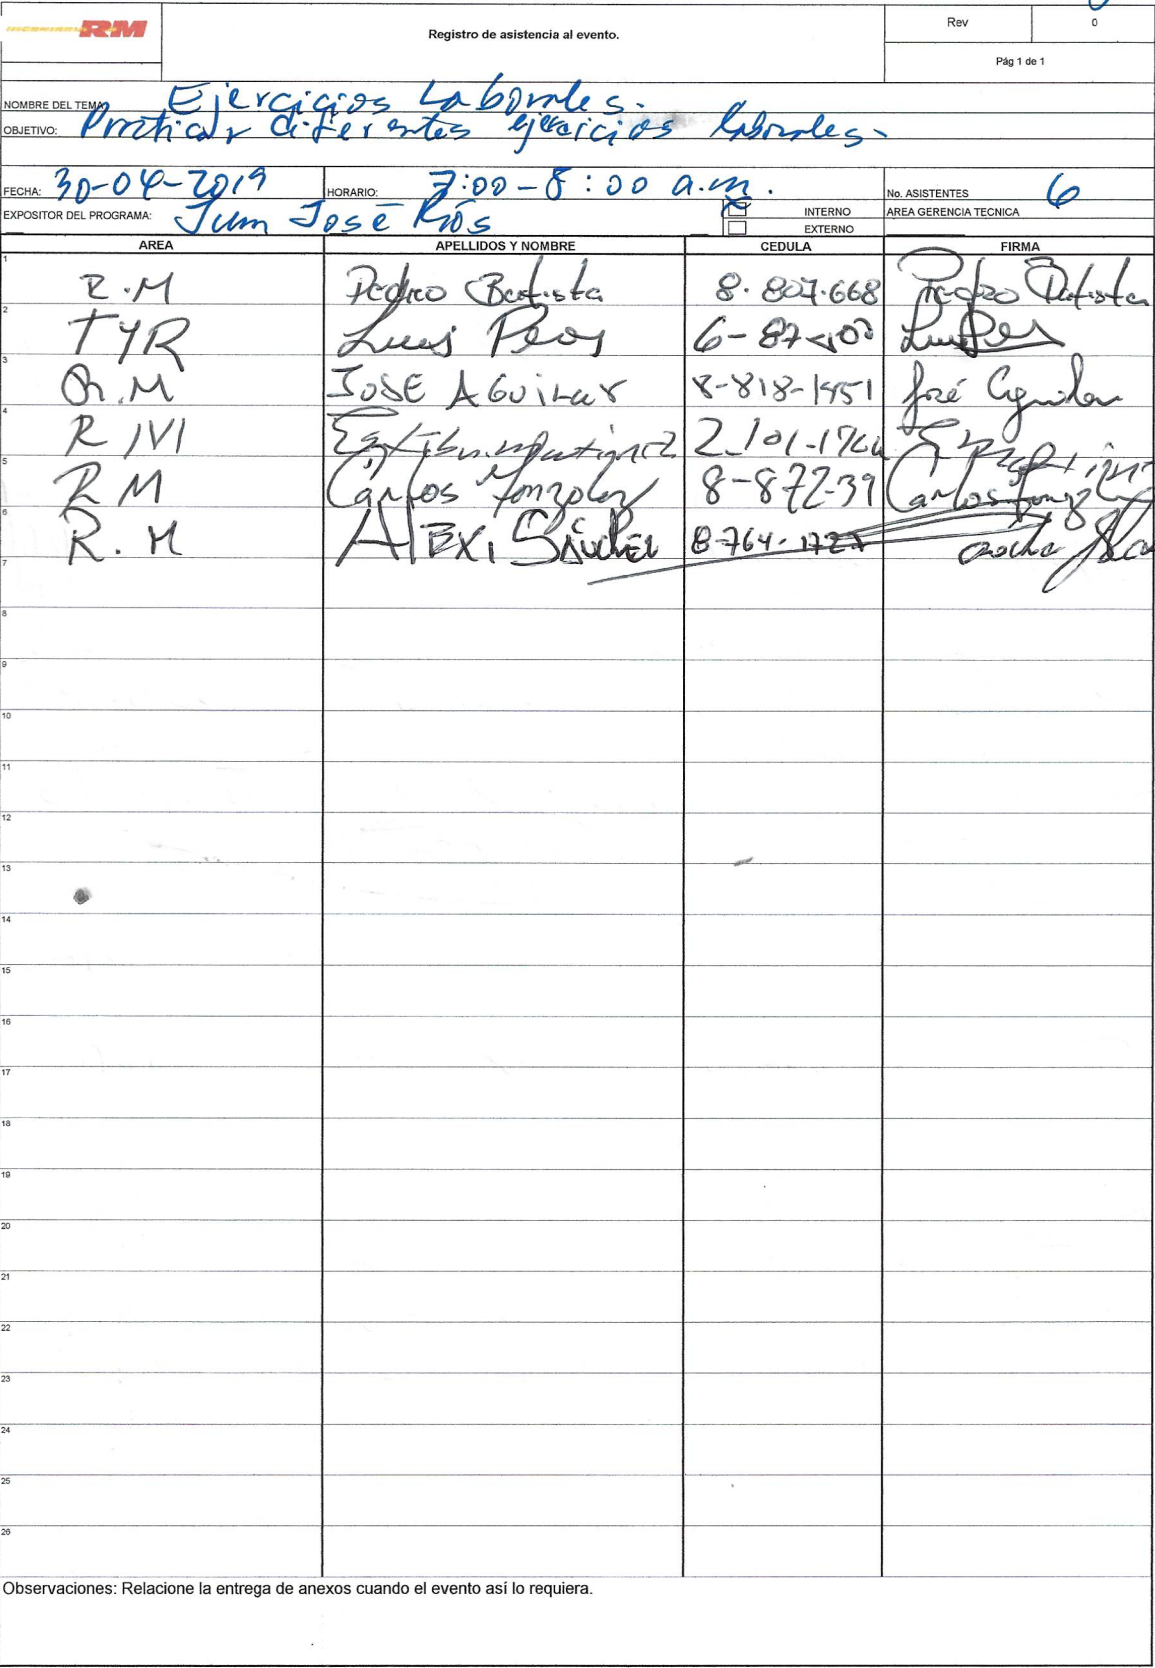 RM
Registro de asistencia al evento.
Rev 0
Pág 1 de 1
NOMBRE DEL TEMA Ejercicios Laborales.
OBJETIVO: Practicar diferentes ejercicios laborales.
FECHA: 30-04-2019 HORARIO: 7:00-8:00 a.m. No. ASISTENTES 6
EXPOSITOR DEL PROGRAMA: Juan José Ríos X INTERNO AREA GERENCIA TECNICA
EXTERNO
AREA APELLIDOS Y NOMBRE CEDULA FIRMA
1 R.M Pedro Batista 8.807.668 Pedro Batista
2 TYR Luis 6-87-
3 R.M JOSE AGUILAR 8-818-1451 José Aguilar
4 R M Martinez 2-101-1766
5 R M Carlos Gonzalez 8-872-39 Carlos Gonzalez
6 R.M Alexi Sánchez 8-764-1727
7
8
9
10
11
12
13
14
15
16
17
18
19
20
21
22
23
24
25
26
Observaciones: Relacione la entrega de anexos cuando el evento así lo requiera.